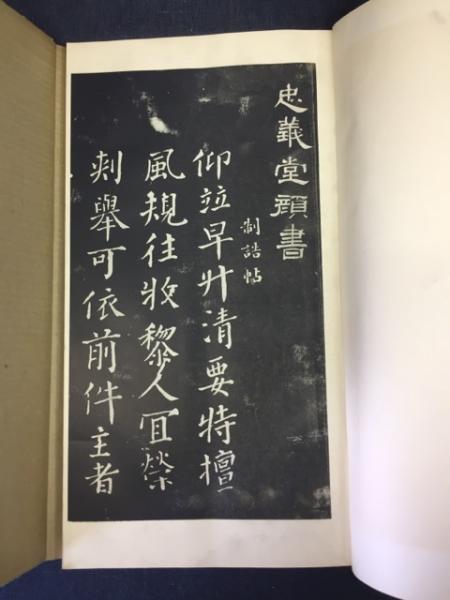 忠義堂顔書
制誥帖
仰竝早升清要特擅
風規往牧黎人冝榮
刾舉可依前件主者